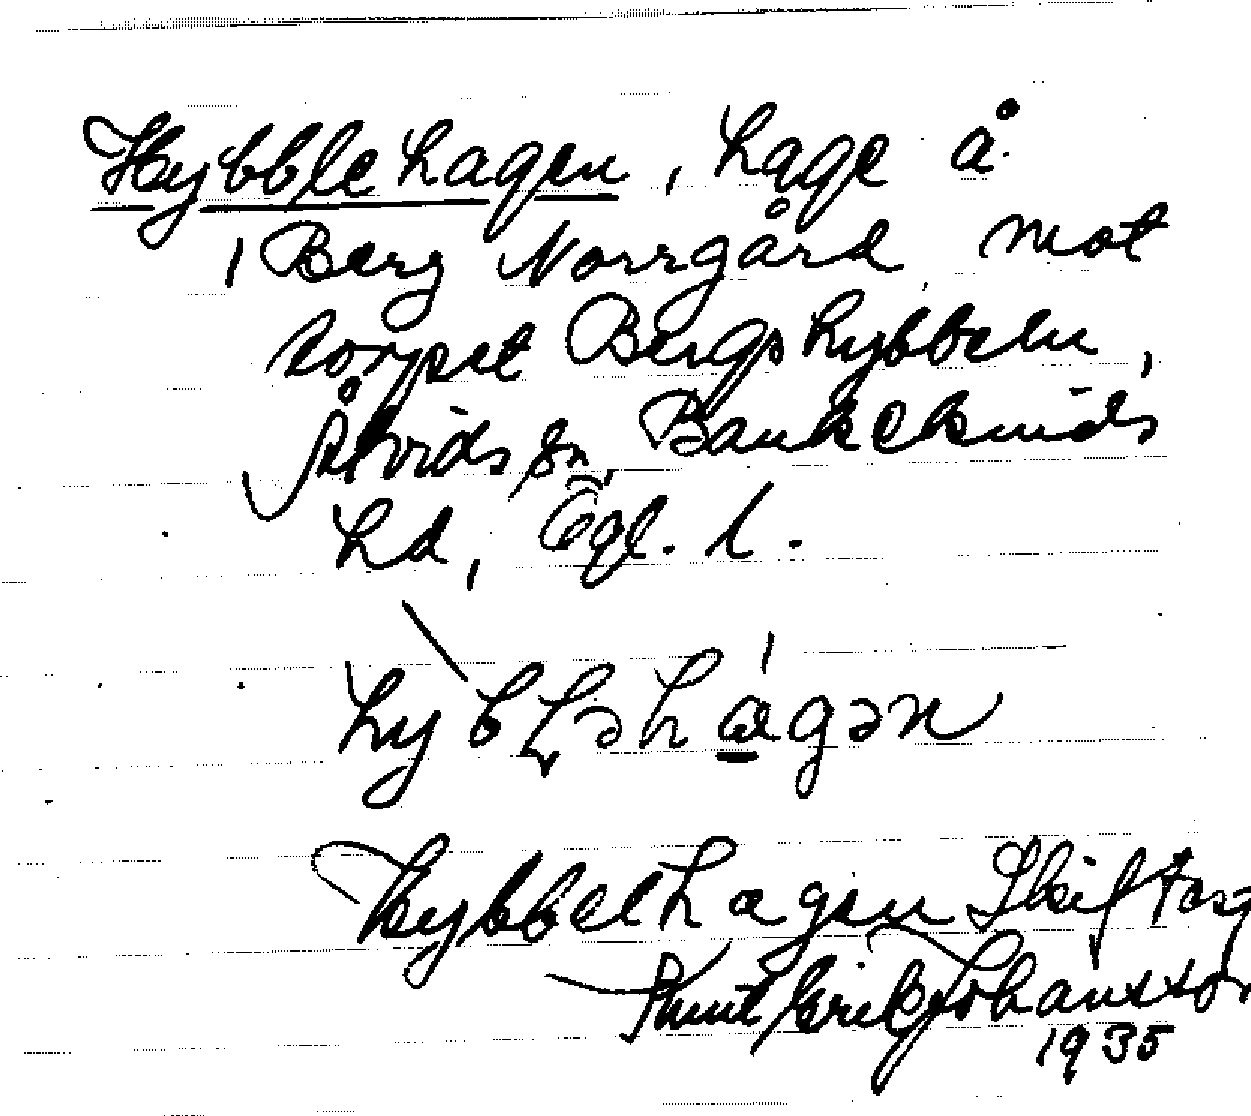 Hybblehagen, hage å
Berg Norrgård mot
torpet Bergshybbeln,
Åtvids sn, Bankekinds
hd, Ögl. l.
hybḷəhagən
Hybbelhagen Skift
Knut Erik Johansson
1935